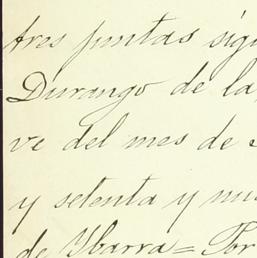 tres puntas sigu
Durango de la
ve del mes de
y setenta y nu
de Ybarra = Por